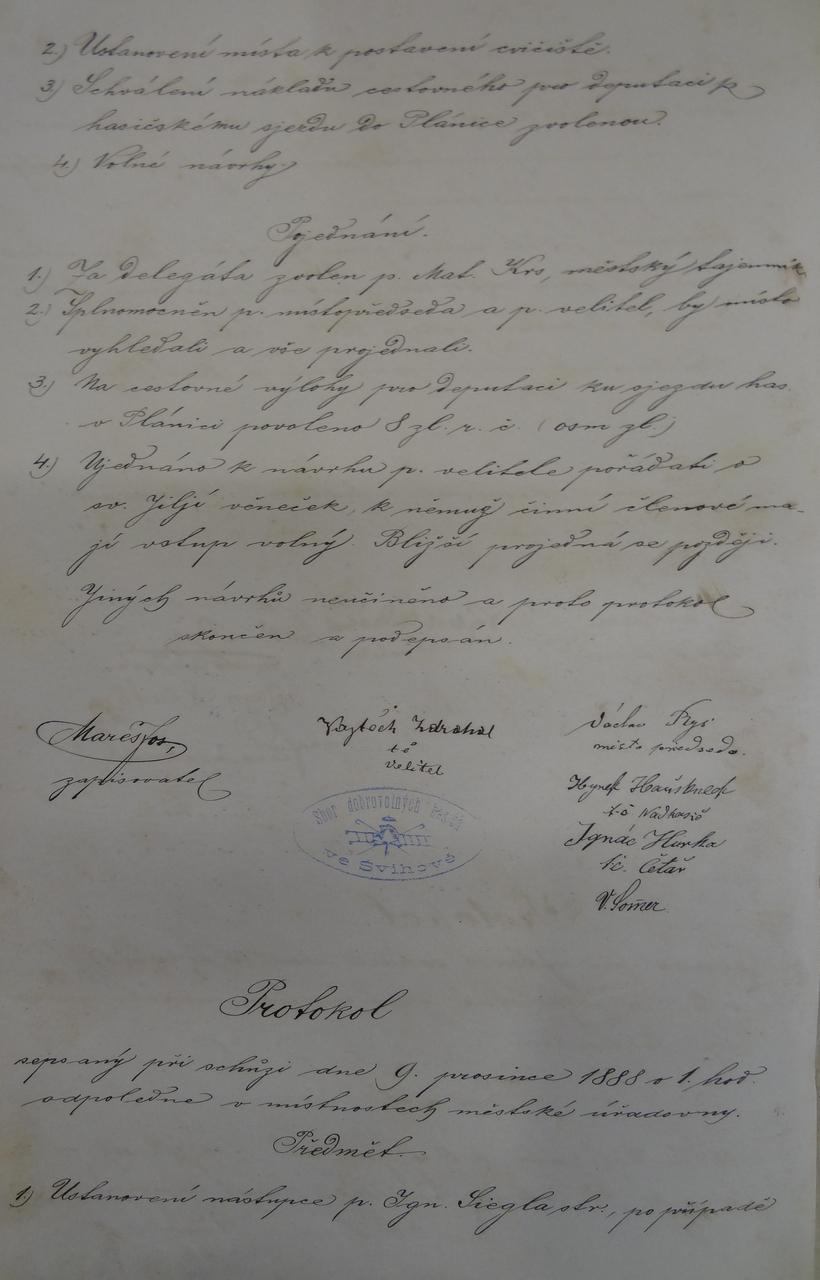 2.) Ustanovení místa k postavení cvičiště.
3.) Schválení nákladu cestovného pro deputaci k
hasičskému sjezdu do Plánice zvolenou.
4.) Volné návrhy
Pojednání.
1.) Za delegáta zvolen p. Mat. Krs, městský tajemník
2.) Splnomocněn p. místopředseda a p. velitel, by místo
vyhledali a vše projednali.
3.) Na cestovné výlohy pro deputaci ku sjezdu has.
v Plánici povoleno 8 zl. r. č. (osm zl.)
4.) Ujednáno k návrhu p. velitele pořádati o
sv. Jiljí věneček, k němuž činní členové ma-
jí vstup volný. Bližší projedná se později.
Jiných návrhů neučiněno a proto protokol
skončen a podepsán.
Mareš Jos,
zapisovatel
Vojtěch Zdrahal
tč
velitel
Sbor dobrovolných hasičů
ve Švihově
Václav
místo předseda.
Hynek
t.č
Ignác Hurka
tč. četař
V. Somer
Protokol
sepsaný při schůzi dne 9. prosince 1888 o 1. hod.
odpoledne v místnostech městské úřadovny.
Předmět.
1.) Ustanovení nástupce p. Ign. Siegla str., po případě